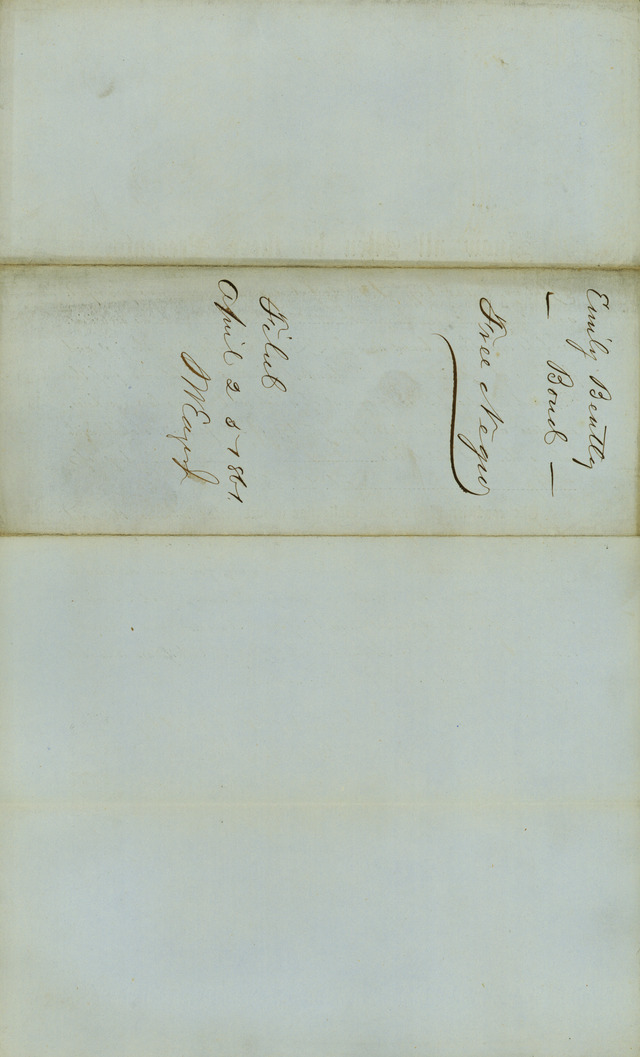 Emily Bently
— Bond —
Free Negro
Filed
April 25 1861